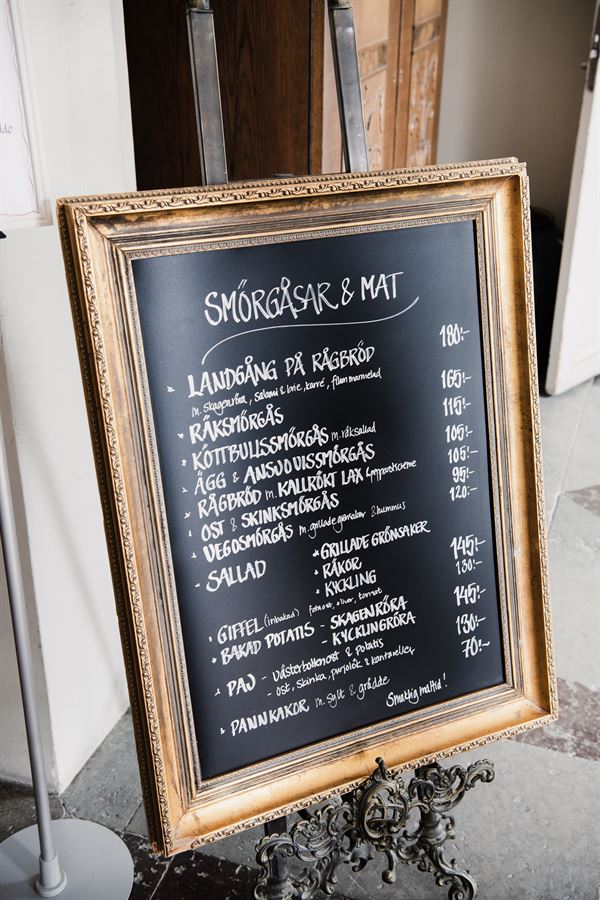 SMÖRGÅSAR & MAT
LANDGÅNG PÅ RÅGBRÖD 180:-
m. skagenröra, salami & brie, karré, fikonmarmelad
RÄKSMÖRGÅS 165:-
KÖTTBULLSSMÖRGÅS m. rödsallad 115:-
ÄGG & ANSJOVISSMÖRGÅS 105:-
RÅGBRÖD m. KALLRÖKT LAX & pepparrotscreme 105:-
OST & SKINKSMÖRGÅS 95:-
VEGOSMÖRGÅS m. grillade grönsaker & hummus 120:-
- SALLAD * GRILLADE GRÖNSAKER 145:-
* RÄKOR
* KYCKLING
GIFFEL (inbakad) fetaost, oliver, tomat 130:-
BAKAD POTATIS - SKAGENRÖRA 145:-
- KYCKLINGRÖRA
PAJ - västerbottenost & potatis 130:-
- ost, skinka, purjolök & kantareller
PANNKAKOR m. sylt & grädde 70:-
Smaklig måltid!